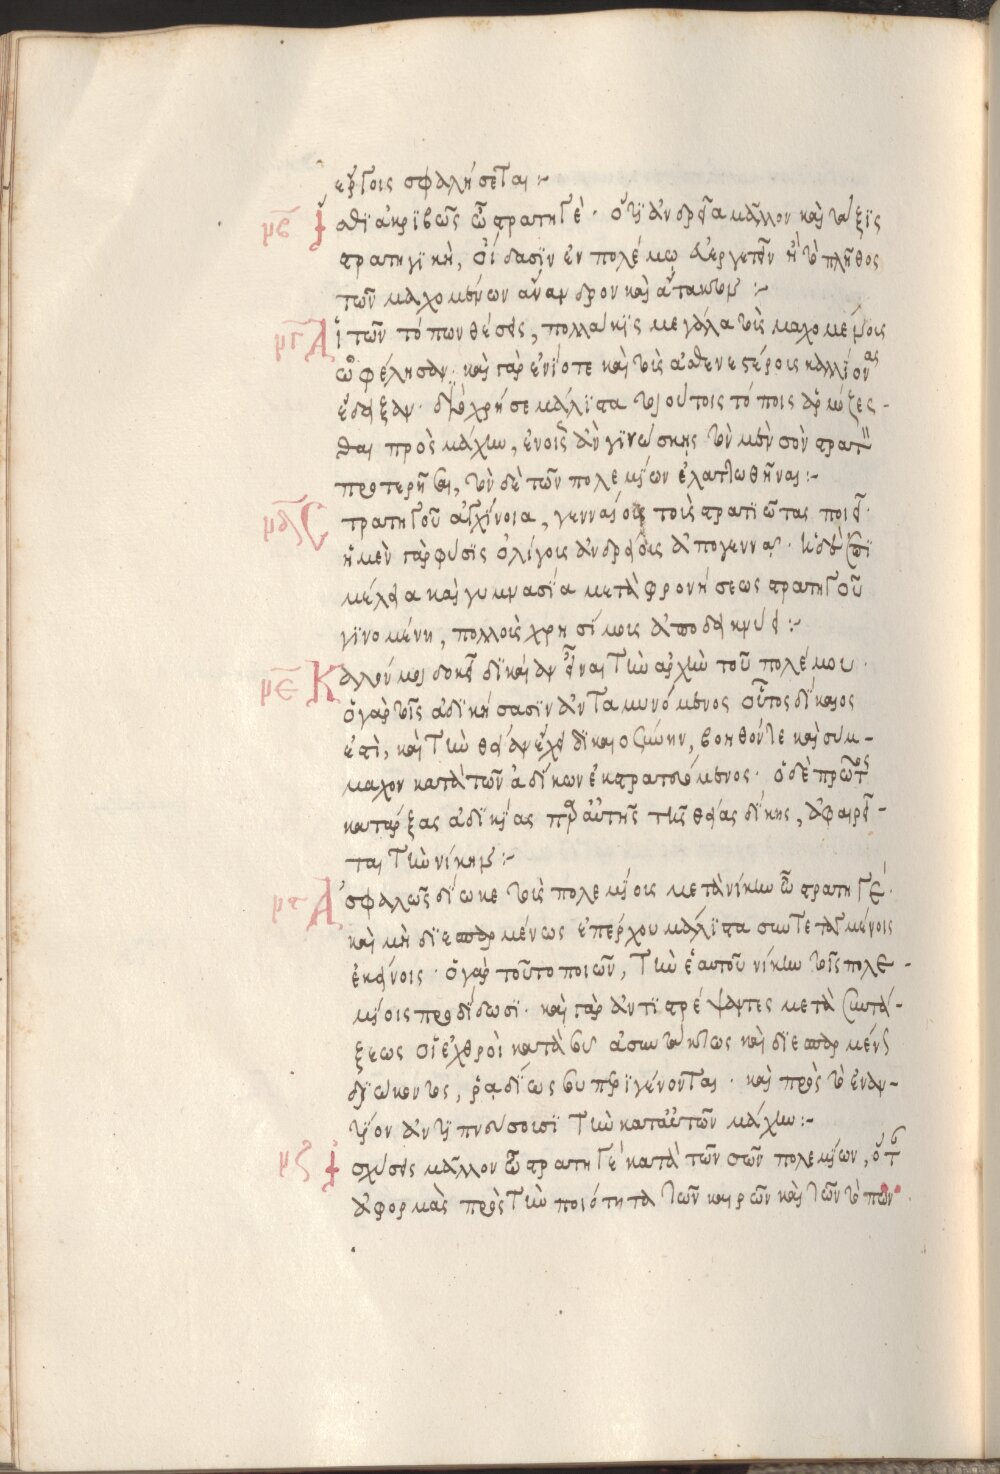 ἔργοις σφαλήσεται :-
μβ Ἴσθι ἀκριβῶς ὦ στρατηγὲ · ὅτι ἀνδρεία μᾶλλον καὶ τάξις
στρατηγικὴ, οἴδασιν ἐν πολέμω ἀεργετεῖν ἢ τὸ πλῆθος
τῶν μαχομένων ἄνανδρον καὶ ἄτακτον :-
μγ Αἱ τῶν τόπων θέσεις, πολλάκις μεγάλα τοὺς μαχομένους
ὠφέλησαν · καὶ γὰρ ἐνίοτε καὶ τοὺς ἀσθενεστέρους καλλίονας
ἔδειξαν · διὸ χρή σε μάλιστα τοιούτοις τόποις ἁρμόζεσ-
θαι πρὸς μάχην, ἐν οἷς ἂν γινώσκης τὸν μὲν σὸν στρατὸν
προτερῆσαι, τὸν δὲ τῶν πολεμίων ἐλαττωθῆναι :-
μδ Στρατηγοῦ ἀγχίνοια, γενναίους τοὺς στρατιώτας ποιεῖ ·
ἡ μὲν γὰρ φύσις ὀλίγους ἀνδρείους ἀπογεννᾷ · ἡ δὲ ἐπι
μέλεια καὶ γυμνασία μετὰ φρονήσεως στρατηγοῦ
γινομένη, πολλοὺς χρησίμους ἀποδείκνυσι :-
με Καλόν μοι δοκεῖ δικαίαν εἶναι τὴν ἀρχὴν τοῦ πολέμου ·
ὁ γὰρ τοῖς ἀδικήσασιν ἀνταμυνόμενος οὗτος δίκαιος
ἐστὶ, καὶ τὴν θείαν ἔχει δικαιοσύνην, βοηθόν τε καὶ σύμ-
μαχον κατὰ τῶν ἀδίκων ἐκστρατευόμενος · ὁ δὲ πρῶτος
κατάρξας ἀδικίας παρ αὐτῆς τῆς θείας δίκης, ἀφαιρεῖ-
ται τὴν νίκην :-
μς Ἀσφαλῶς δίωκε τοὺς πολεμίους μετὰ νίκην ὦ στρατηγέ ·
καὶ μὴ διεσπαρμένως ἐπέρχου μάλιστα συντεταγμένοις
ἐκείνοις · ὁ γὰρ τοῦτο ποιῶν, τὴν ἑαυτοῦ νίκην τοῖς πολε-
μίοις προδίδωσι · καὶ γὰρ ἀντιστρέψαντες μετὰ συντά-
ξεως οἱ ἐχθροὶ κατὰ σου ἀσυντάκτως καὶ διεσπαρμένως
διώκοντος, ῥαδίως σου περιγένονται · καὶ πρὸς τὸ ἐναν-
τίον ἀντιπνεύσουσι τὴν κατ αὐτῶν μάχην :-
μζ Ἰσχύσεις μᾶλλον ὦ στρατηγὲ κατὰ τῶν σῶν πολεμίων, ὅταν
ἀφορμὰς πρὸς τὴν ποιότητα τῶν καιρῶν καὶ τῶν τόπων